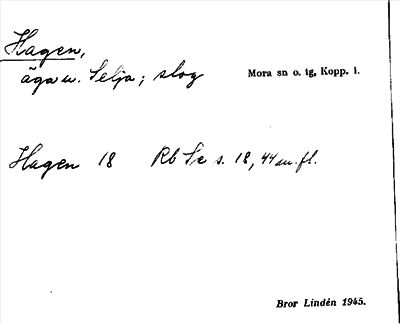 Hagen,
äga u. Selja; slog
Mora sn o. tg, Kopp. l.
Hagen 18 Rb Se s. 18, 44 m. fl.
Bror Lindén 1945.